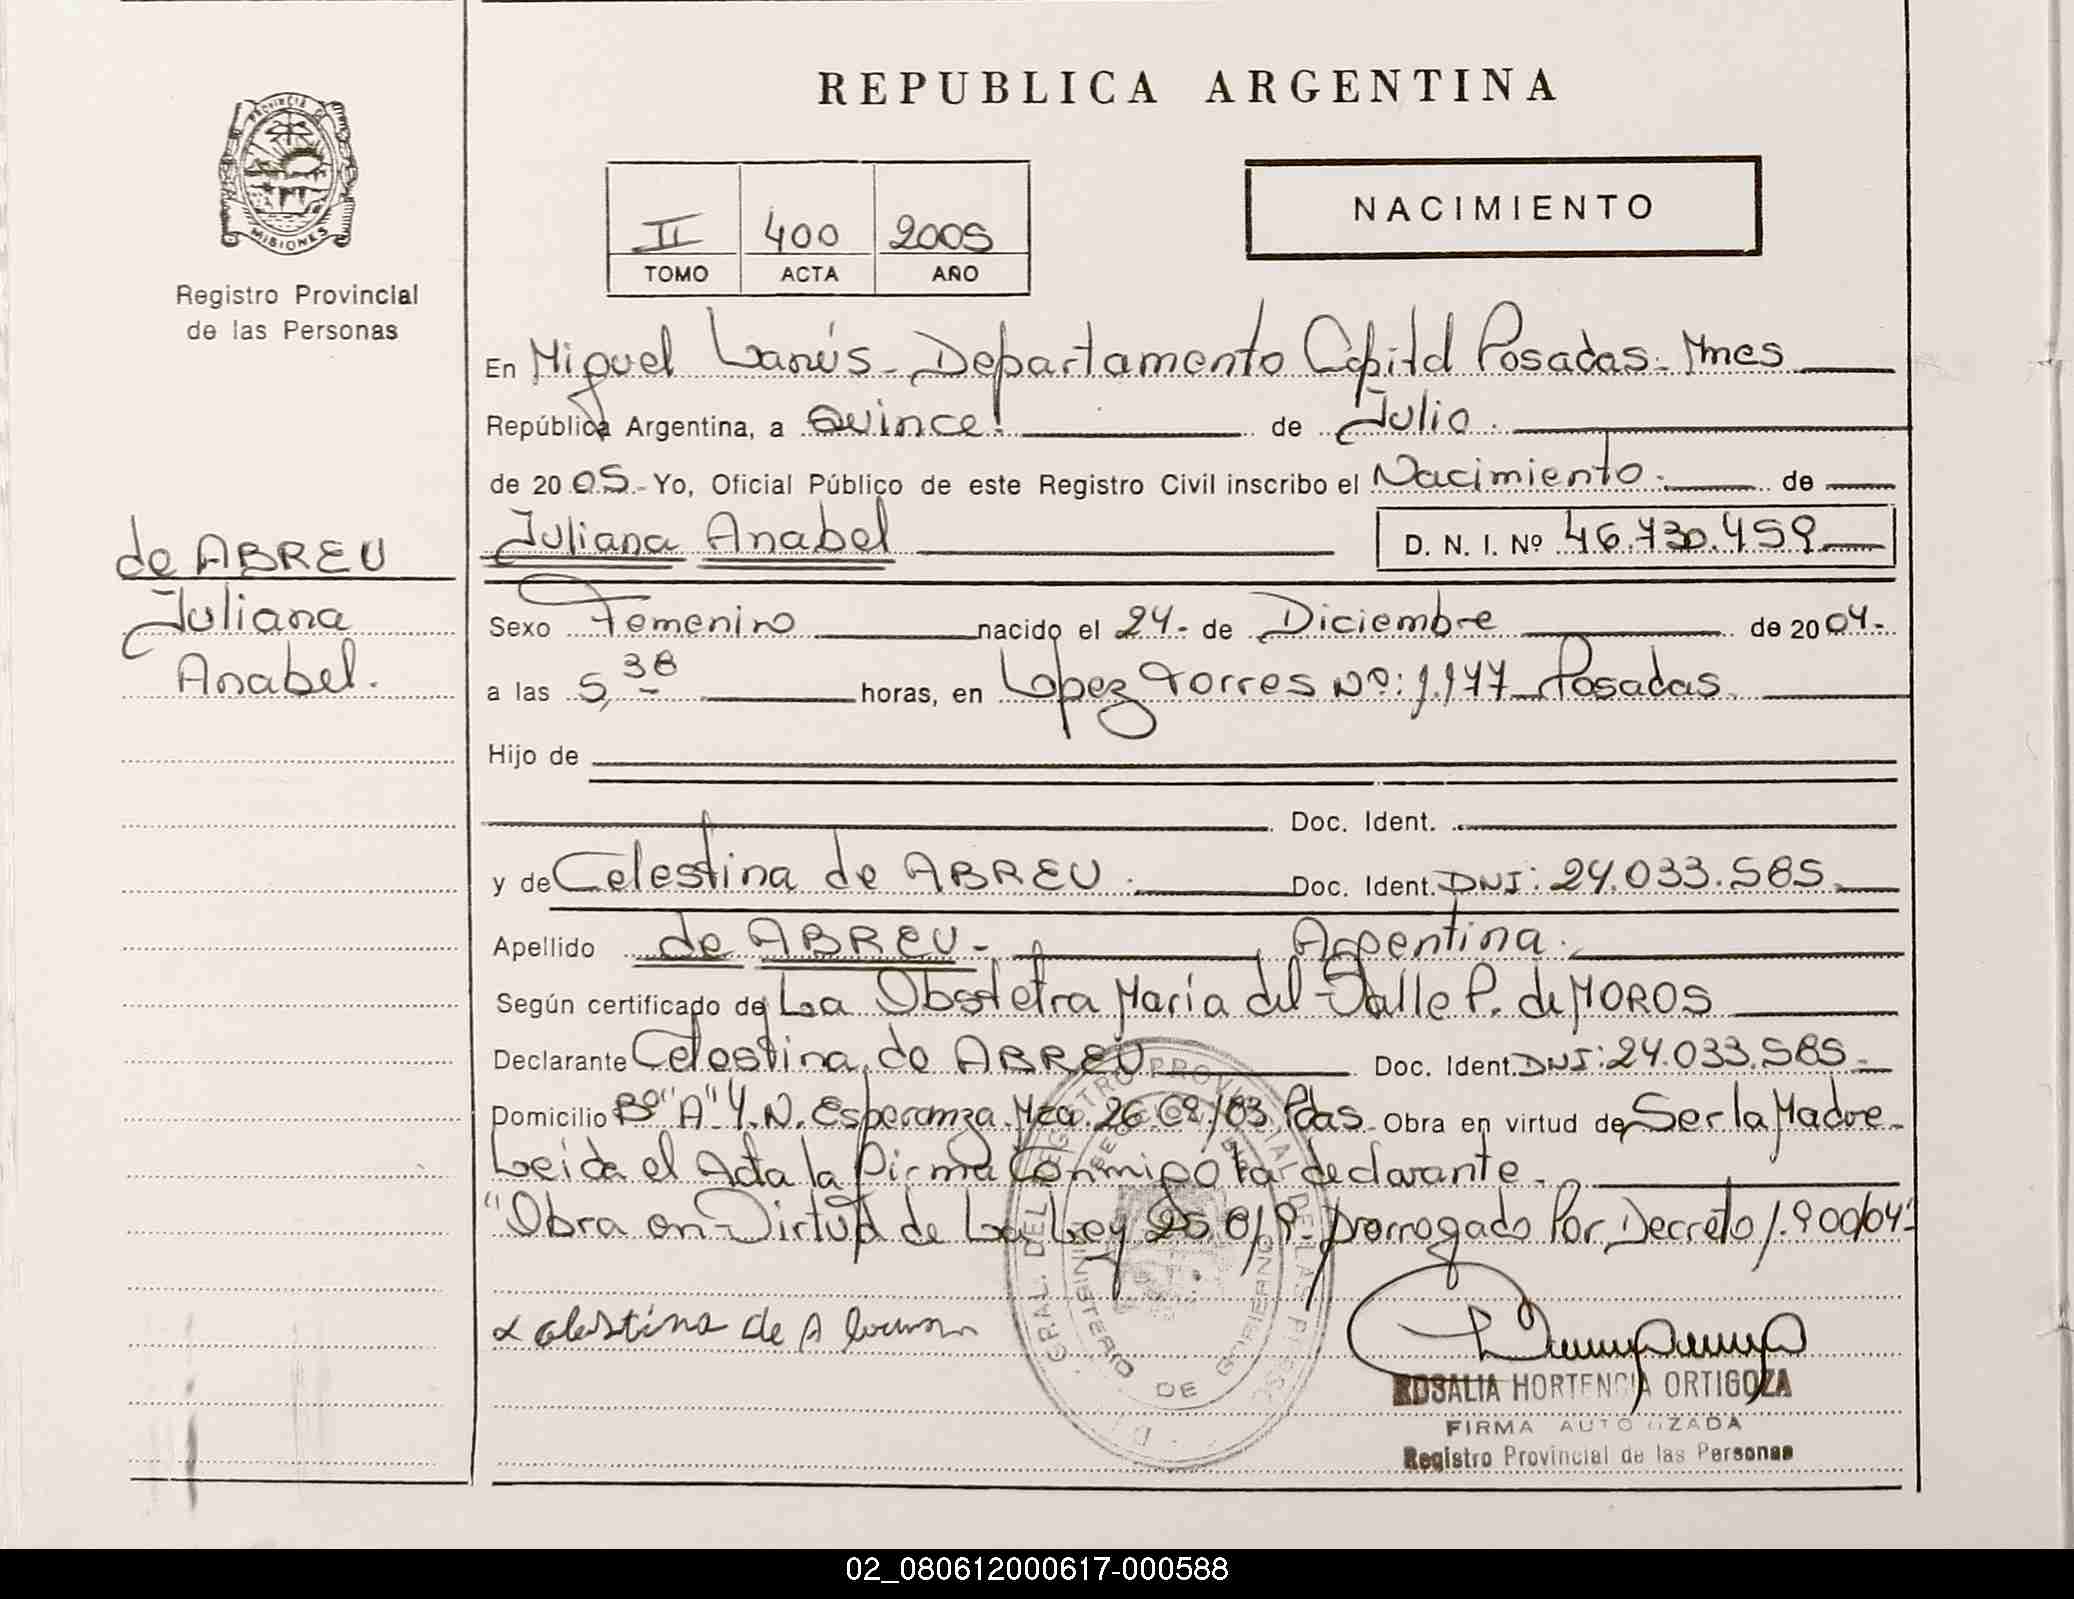 REPUBLICA ARGENTINA
PROVINCIA DE
MISIONES
Registro Provincial
de las Personas
II 400 2005
TOMO ACTA AÑO
NACIMIENTO
En Miguel Lanús - Departamento Capital Posadas - Mnes
República Argentina, a Quince. de Julio.
de 2005.- Yo, Oficial Público de este Registro Civil inscribo el Nacimiento. de
Juliana Anabel D. N. I. Nº 46.730.459
de ABREU
Juliana
Anabel.
Sexo Femenino nacido el 24- de Diciembre de 2004.-
a las 5,38 horas, en Lopez Torres Nº: 1.177 Posadas
Hijo de
Doc. Ident.
y de Celestina de ABREU. Doc. Ident. DNI: 24.033.585.
Apellido de ABREU.- Argentina.
Según certificado de La Obstetra María del Valle P. de MOROS
Declarante Celestina de ABREU Doc. Ident. DNI: 24.033.585.-
Domicilio Bº "A" Y.N. Esperanza Mza. 26 Pdas. Obra en virtud de Ser la Madre.-
Leida el Acta la firma Conmigo la declarante.
"Obra en Virtud de La Ley prorrogado Por Decreto 1.900/04"
Celestina de
GRAL. DEL REGISTRO PROVINCIAL DE LAS PERSONAS
MINISTERIO DE GOBIERNO
ROSALIA HORTENCIA ORTIGOZA
FIRMA AUTORIZADA
Registro Provincial de las Personas
02_080612000617-000588